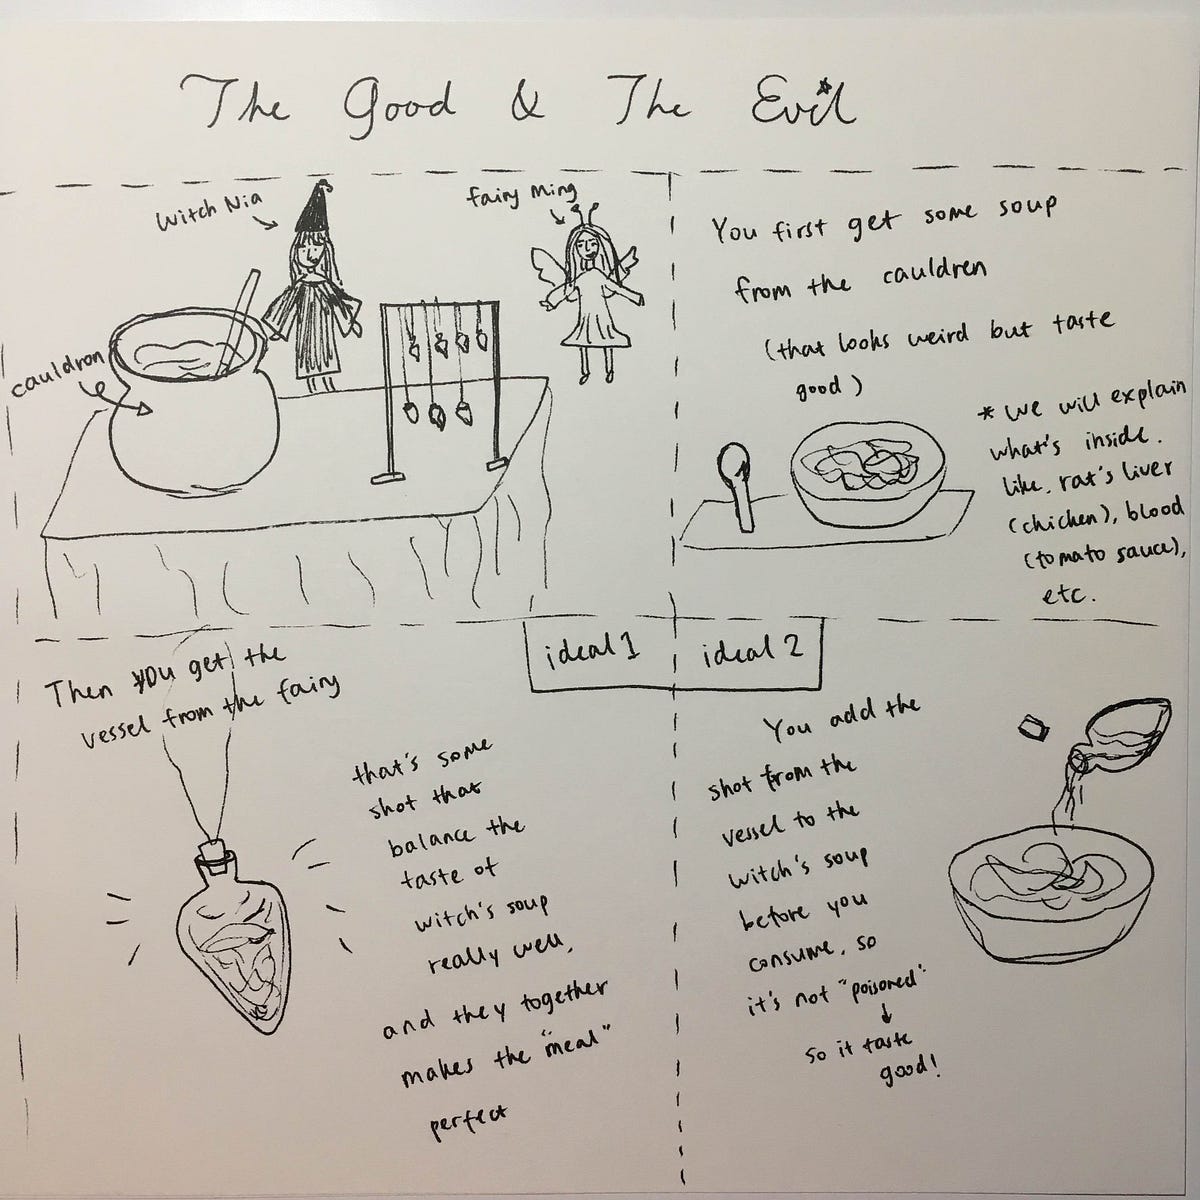 The Good & The Evil
Witch Nia
fairy Ming
cauldron
You first get some soup
from the cauldren
(that looks weird but taste
good)
* We will explain
what's inside.
like, rat's liver
(chicken), blood
(tomato sauce),
etc.
ideal 1
ideal 2
Then you get the
vessel from the fairy
that's some
shot that
balance the
taste of
witch's soup
really well,
and they together
makes the "meal"
perfect
You add the
shot from the
vessel to the
witch's soup
before you
consume, so
it's not "poisoned"
so it taste
good!